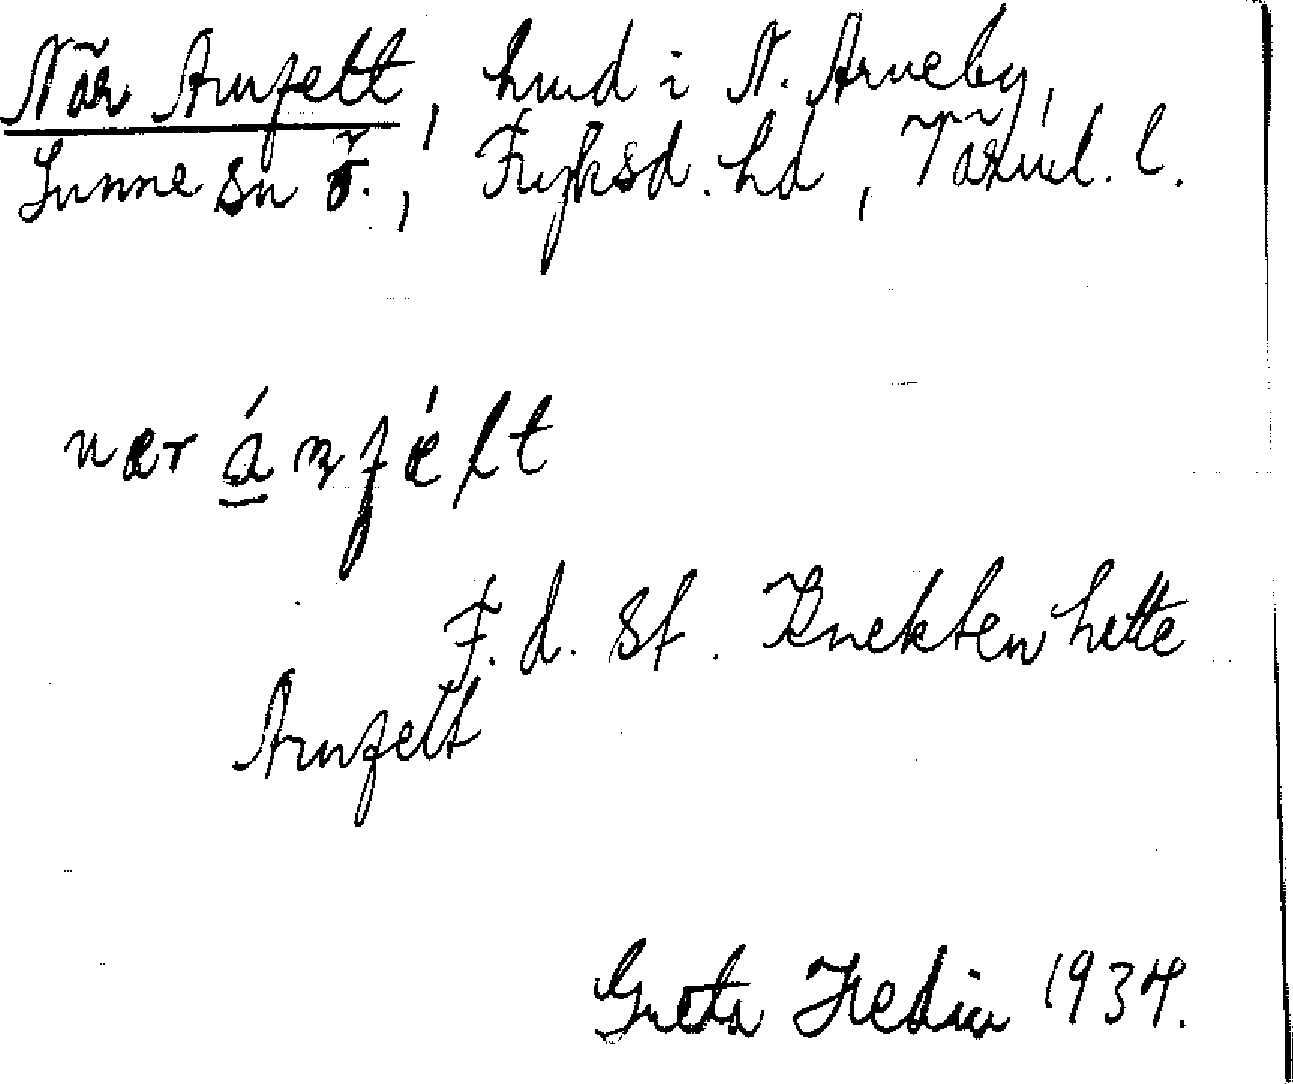 När Arnfelt, hmd i N. Arneby,
Sunne sn Ö., Fryksd. hd, Värml. l.
nær ánfǽlt
F. d. sf. Knekten hette
Arnfelt
Greta Hedin 1934.